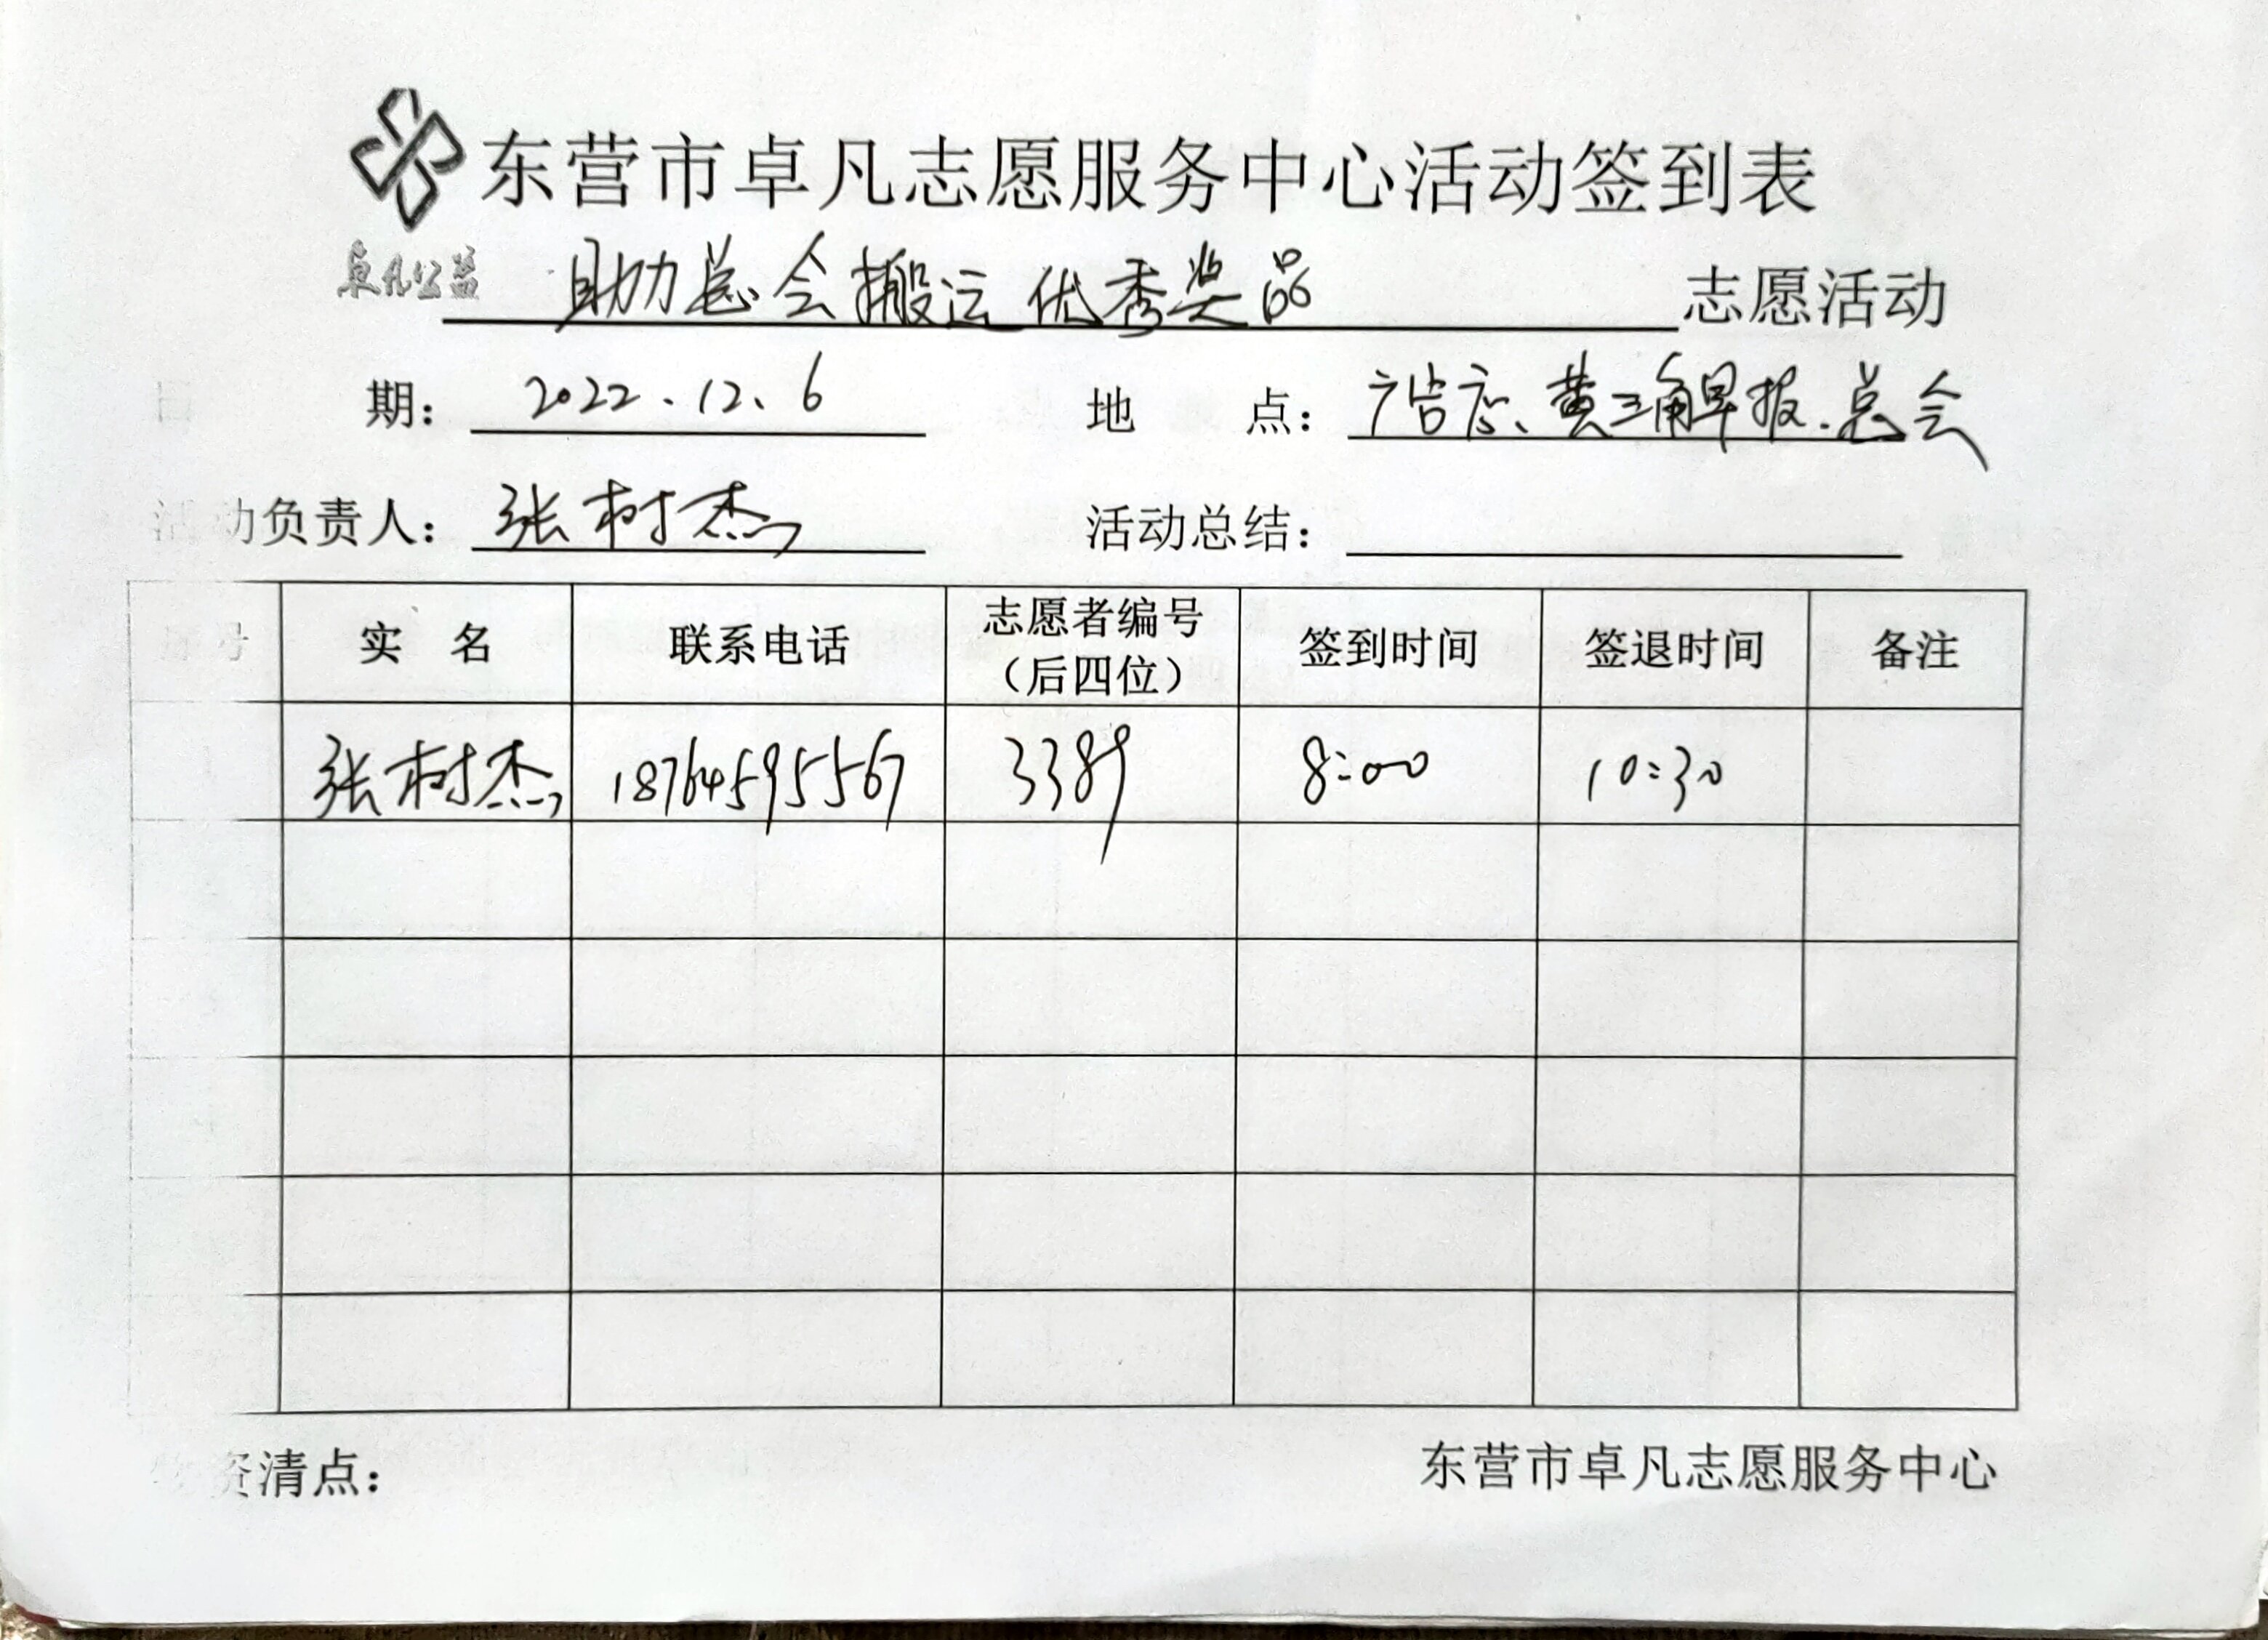 东营市卓凡志愿服务中心活动签到表
卓凡公益 助力总会搬运优秀奖品 志愿活动
日 期： 2022.12.6 地 点： 广告店、黄三角早报.总会
活动负责人： 张树杰 活动总结：
序号 实 名 联系电话 志愿者编号（后四位） 签到时间 签退时间 备注
张树杰 18764595567 3389 8:00 10:30
物资清点： 东营市卓凡志愿服务中心